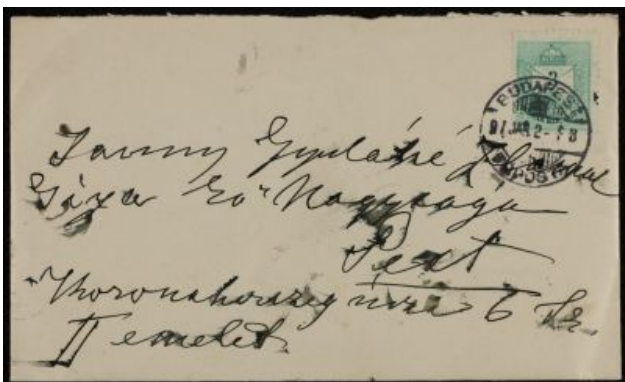 BUDAPEST
97 JAN. 2
Gyuláné
Géza Eő Nagysága
Pest
Koronaherczeg utcza 6 sz.
II emelet.